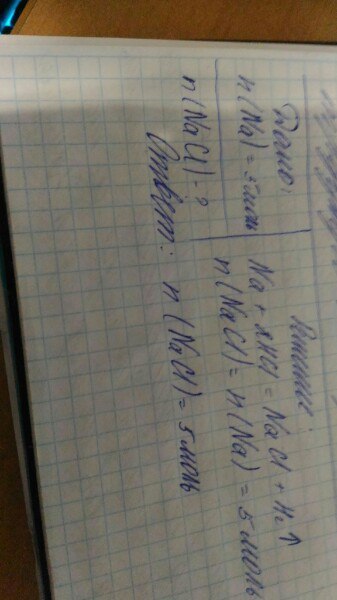 Дано:
n(Na) = 5 моль
n(NaCl) - ?
Решение:
Na + 2HCl = NaCl + H₂↑
n(NaCl) = n(Na) = 5 моль
Ответ: n(NaCl) = 5 моль